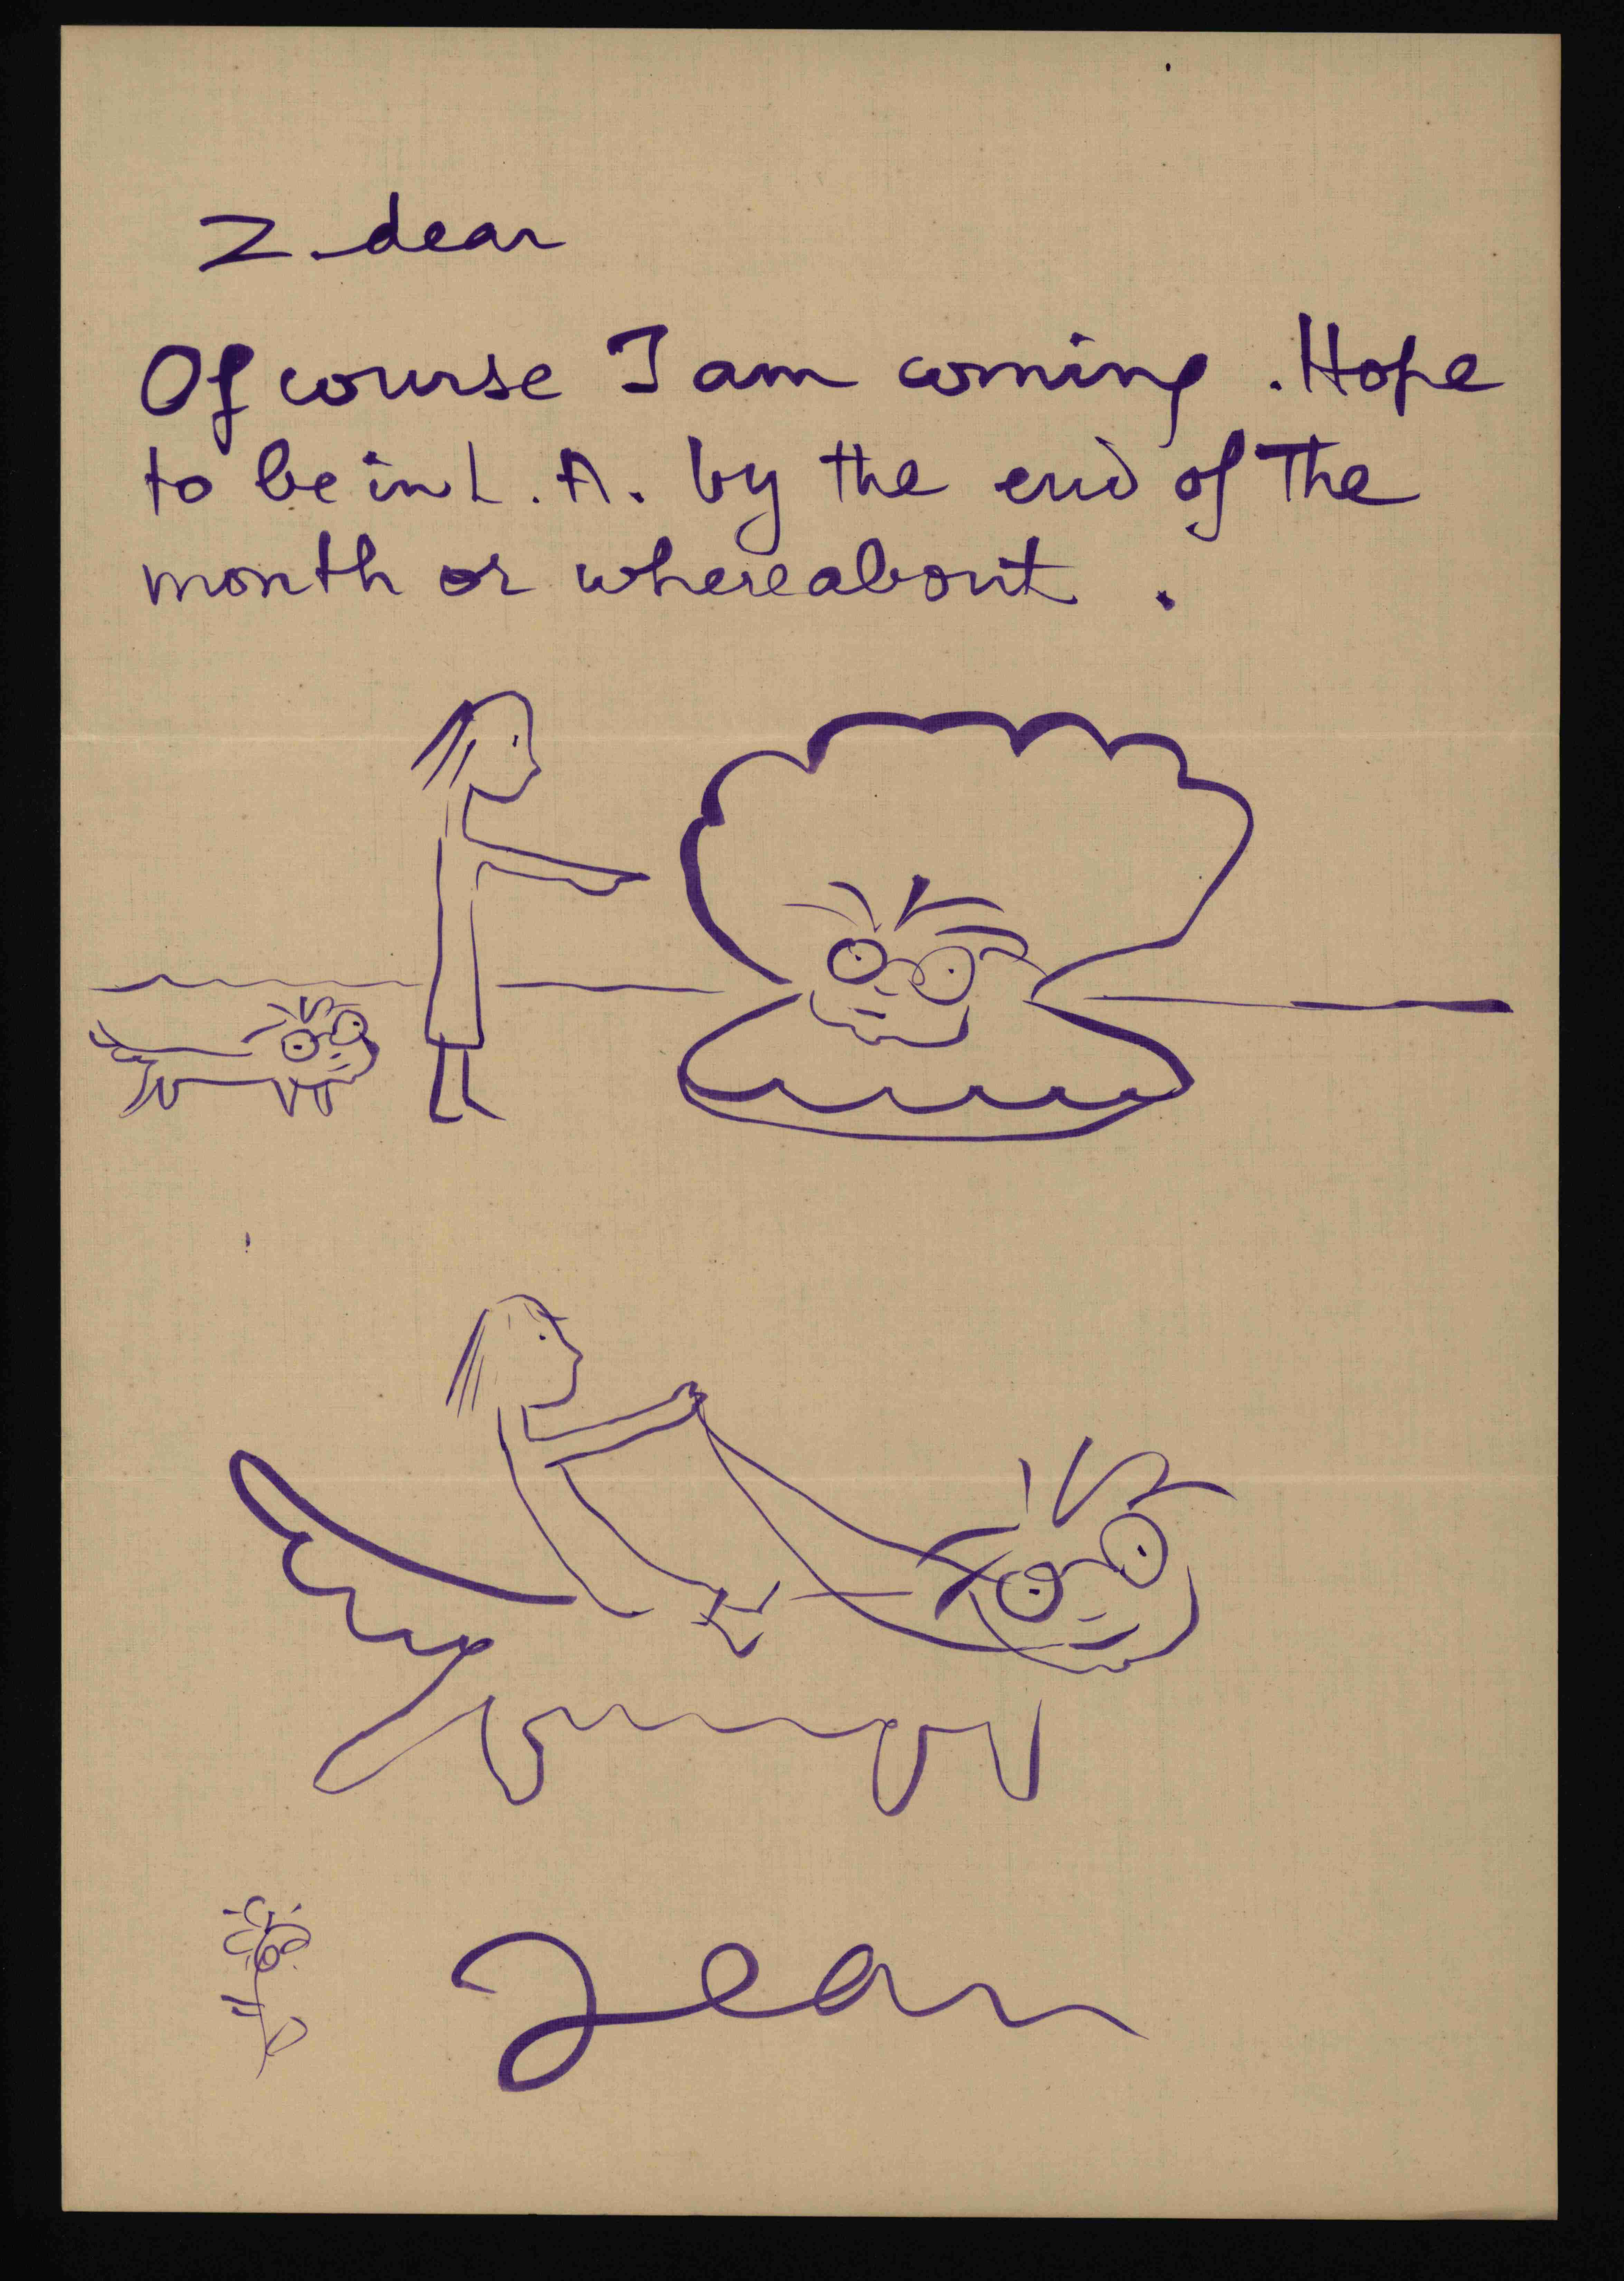 Z. dear
Of course I am coming. Hope
to be in L.A. by the end of The
month or whereabout.
Jean